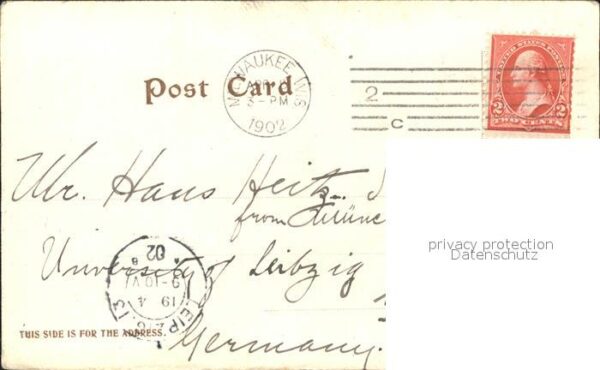 Post Card
MILWAUKEE, WIS
3-PM
1902
2
C
UNITED STATES POSTAGE
2 2
TWO CENTS
Mr. Hans Heitz
from
University of Leibzig
Germany.
LEIPZIG 13
19 4
9-10 V
02
THIS SIDE IS FOR THE ADDRESS.
privacy protection
Datenschutz